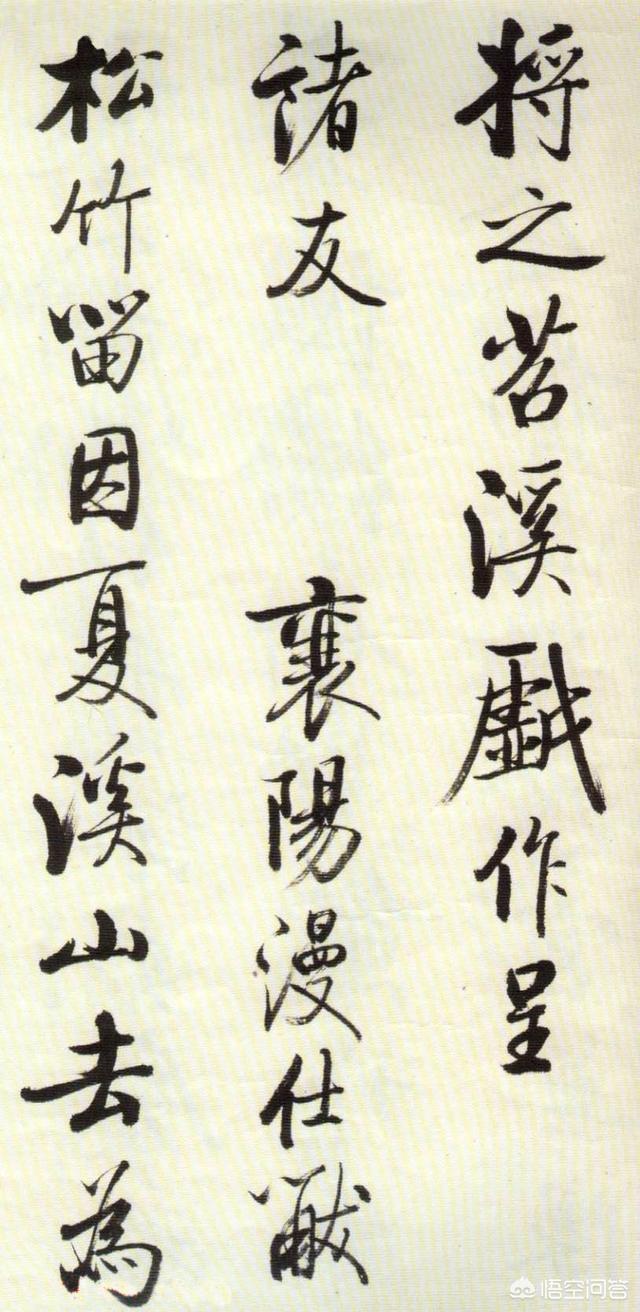 将之苕溪戲作呈
諸友 襄陽漫仕黻
松竹留因夏溪山去為
悟空问答